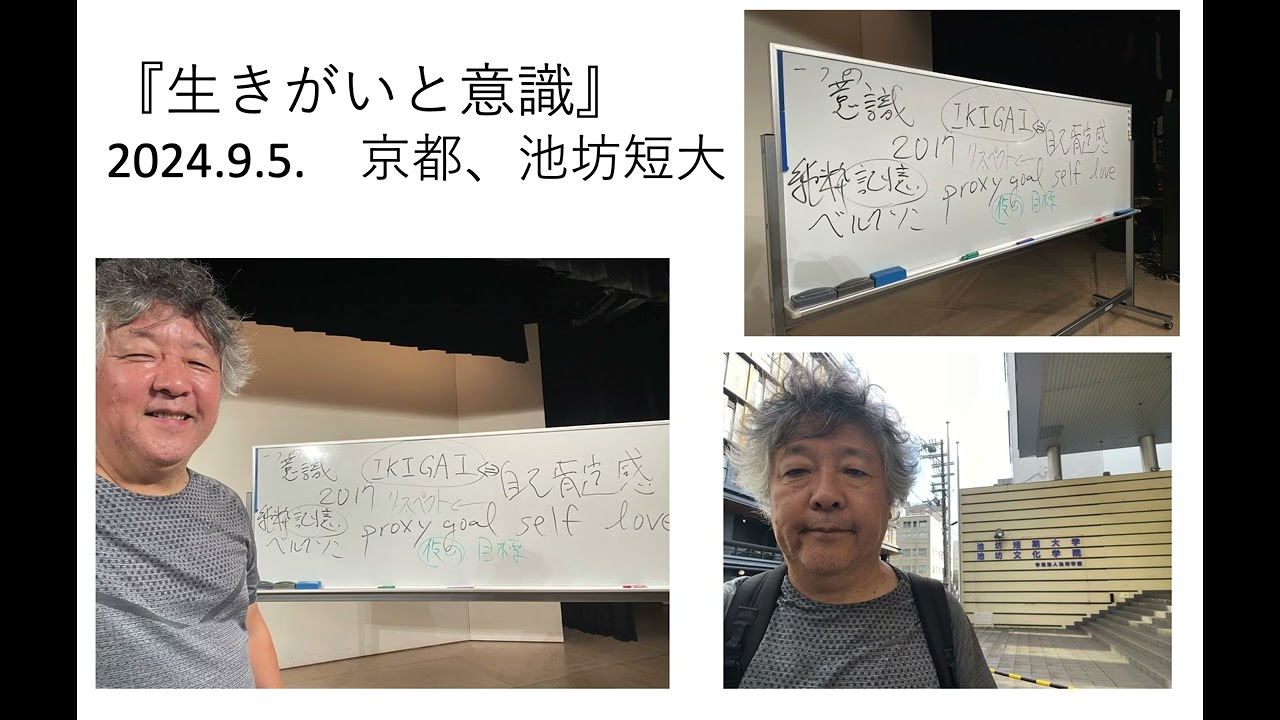 『生きがいと意識』
2024.9.5. 京都、池坊短大
一つの
意識
IKIGAI⇔自己肯定感
2017 リスペクト←
純粋記憶 proxy goal self love
ベルクソン
仮の 目標
一つの
意識
IKIGAI⇔自己肯定感
2017 リスペクト←
純粋記憶 proxy goal self love
ベルクソン
仮の 目標
池坊短期大学
池坊文化学院
学校法人池坊学園